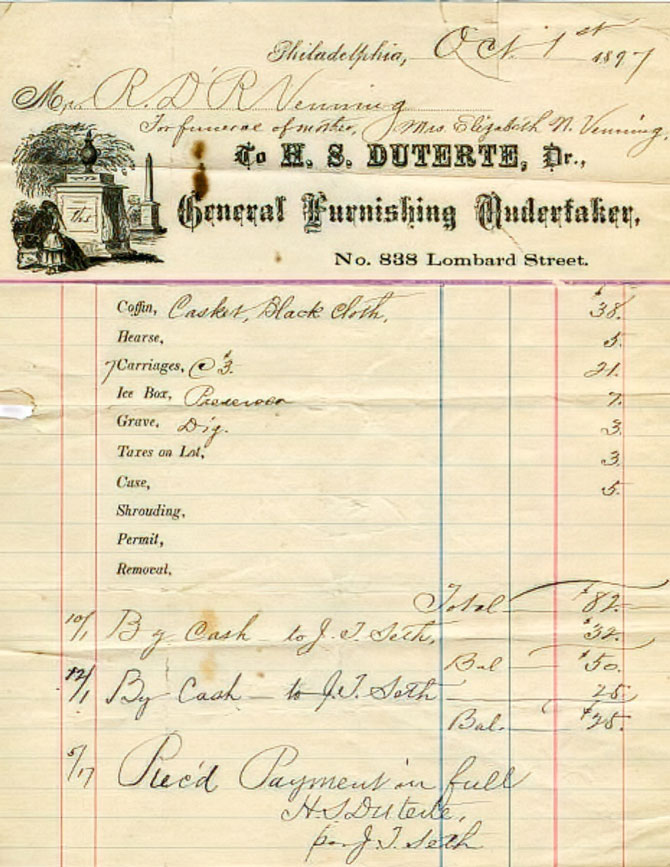 Philadelphia, Oct. 1st 1897
Mr. R. D' R Venning
For funeral of mother, Mrs. Elizabeth N. Venning.
To H. S. DUTERTE, Dr.,
General Furnishing Undertaker,
No. 838 Lombard Street.
Coffin, Casket, Black Cloth, $38.
Hearse, 5.
7 Carriages, @ $3. 21.
Ice Box, Preserver 7.
Grave. Dig. 3.
Taxes on Lot, 3.
Case, 5.
Shrouding,
Permit,
Removal,
Total $82.
10/1 By Cash to J. T. Seth, $32.
Bal $50.
12/1 By Cash to J. T. Seth 25.
Bal. $25.
5/17 Rec'd Payment in full
H. S. Duterte,
per J. T. Seth